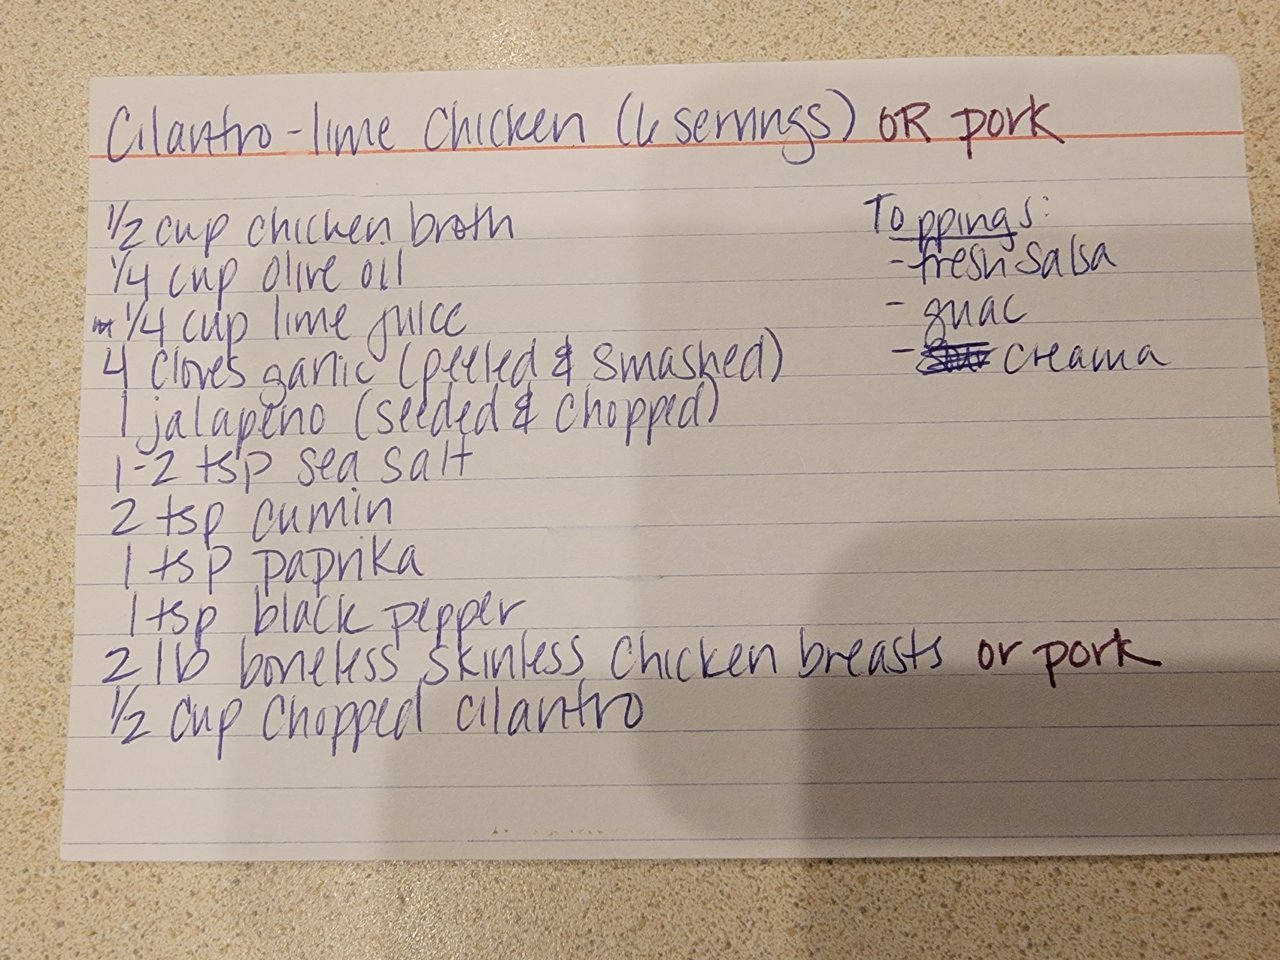 Cilantro-lime Chicken (6 servings) OR pork
1/2 cup chicken broth
1/4 cup olive oil
1/4 cup lime juice
4 cloves garlic (peeled & smashed)
1 jalapeno (seeded & chopped)
1-2 tsp sea salt
2 tsp cumin
1 tsp paprika
1 tsp black pepper
2 lb boneless skinless chicken breasts or pork
1/2 cup chopped cilantro
Toppings:
- fresh salsa
- guac
- creama